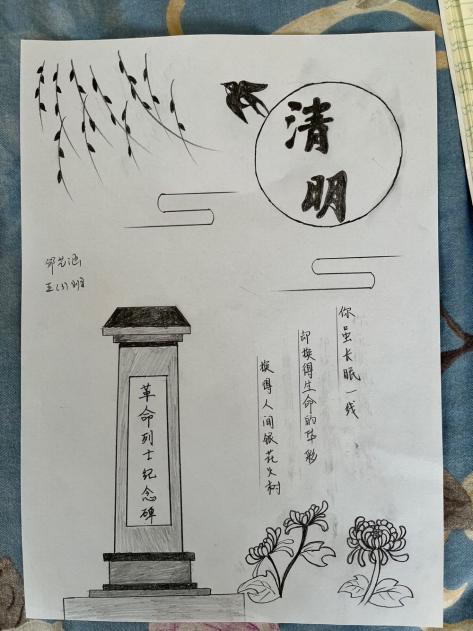 清明
五(3)班
革命烈士纪念碑
你虽长眠一线
却换得生命的华彩
换得人间银花火树